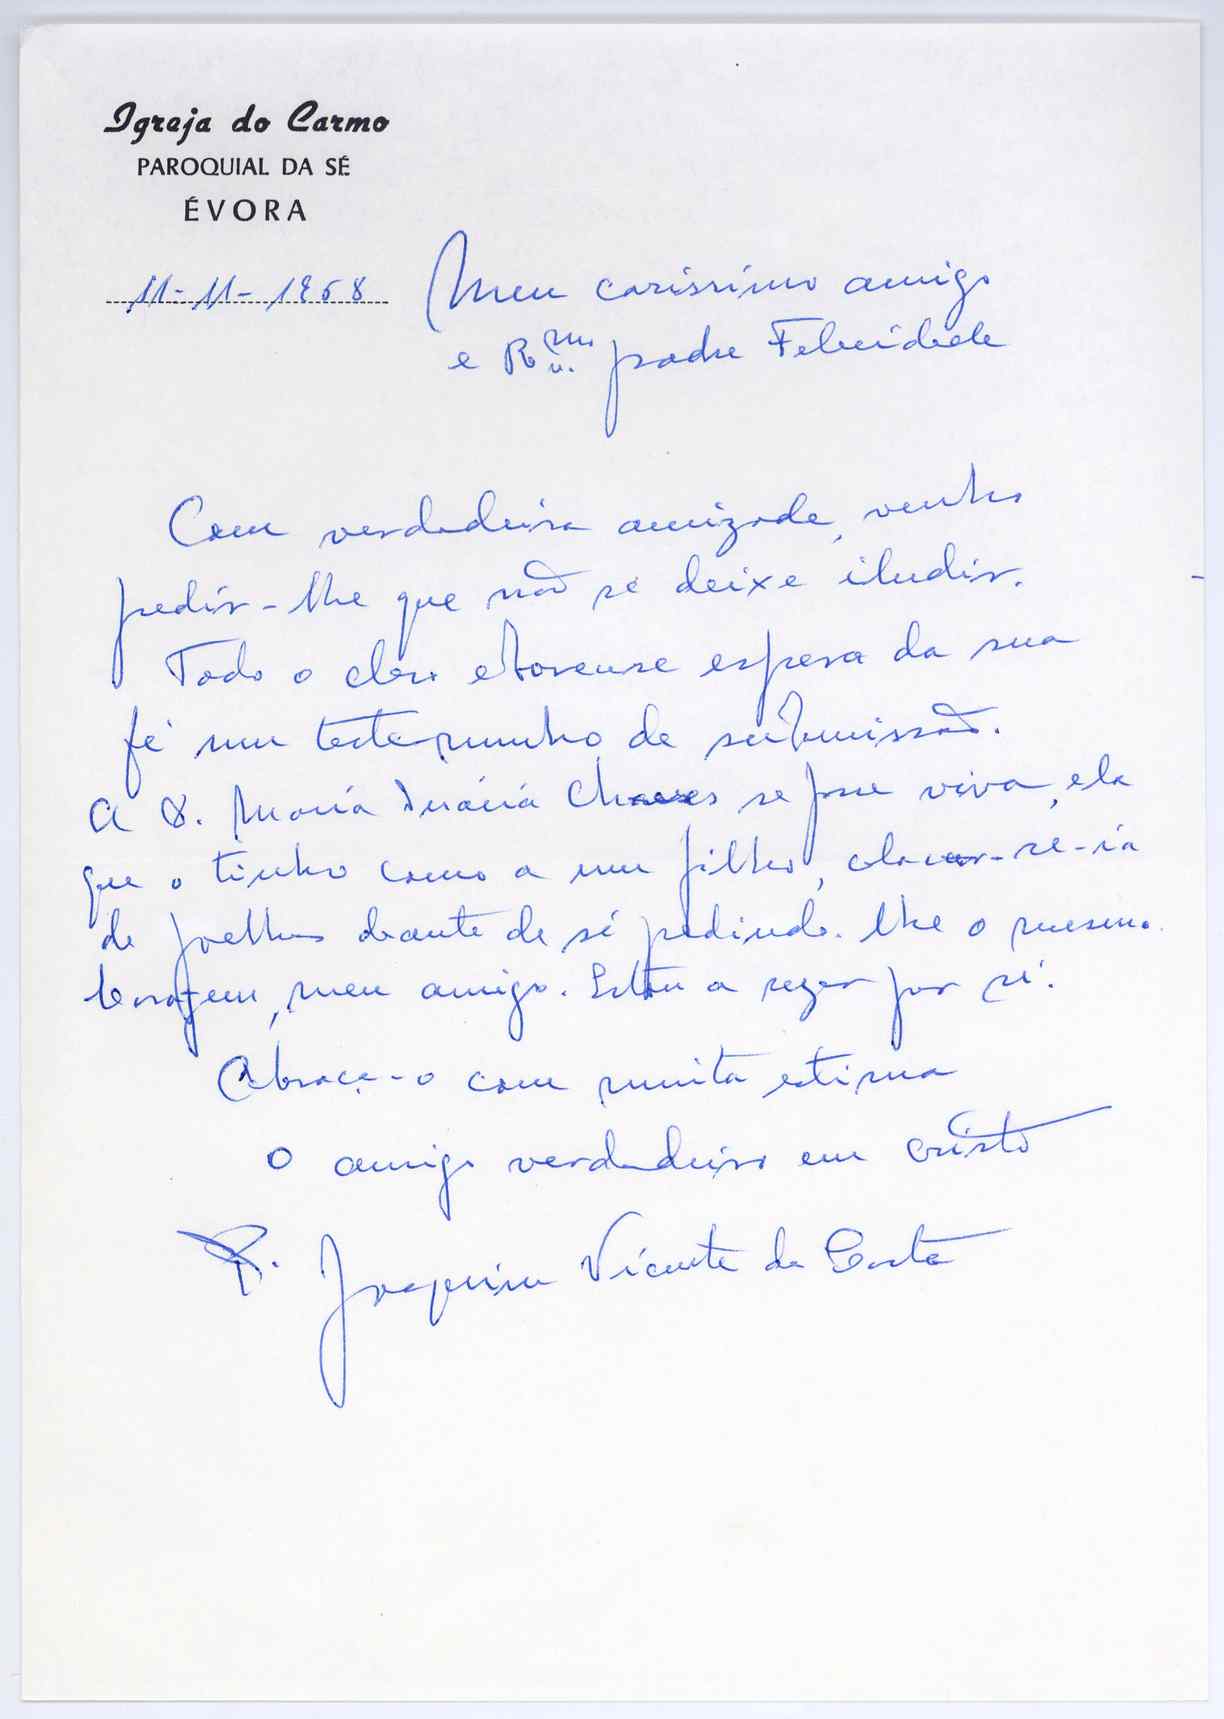 Igreja do Carmo
PAROQUIAL DA SÉ
ÉVORA
11-11-1968
Meu caríssimo amigo
e Rmu. padre Felicidade
Com verdadeira amizade, venho
pedir-lhe que não se deixe iludir.
Todo o clero eborense espera da sua
fé um testemunho de submissão.
A D. Maria Inácia Chaves se fosse viva, ela
que o tinha como a um filho, colocar-se-ia
de joelhos deante de si pedindo-lhe o mesmo.
Coragem, meu amigo. Estou a rezar por si.
Abraça-o com muita estima
O amigo verdadeiro em Cristo
P. Joaquim Vicente da Costa